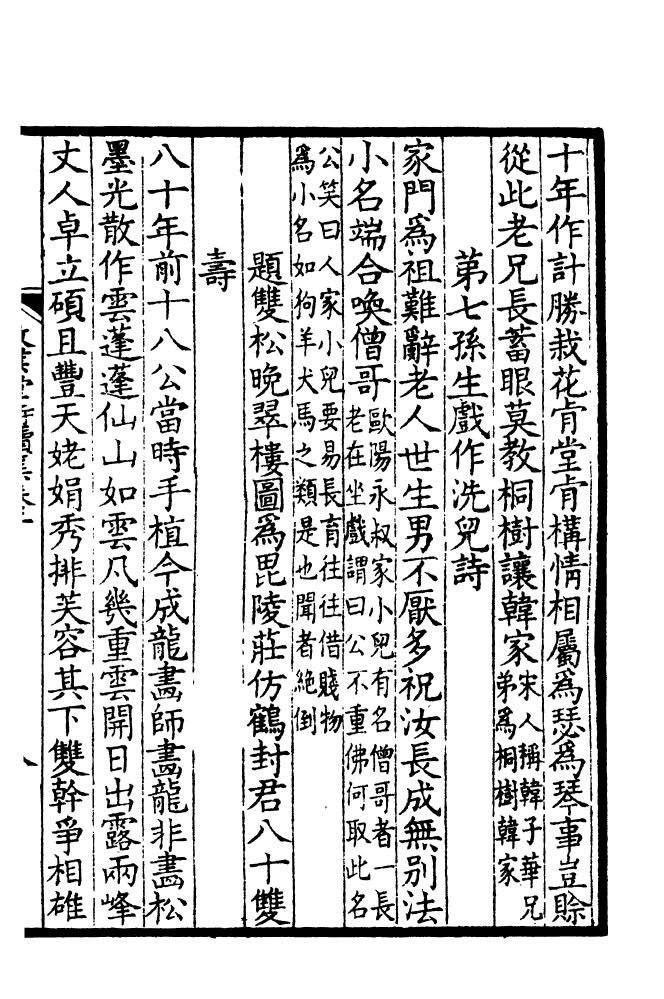 十年作計勝栽花肯堂肯構情相屬為瑟為琴事豈賒
從此老兄長蓄眼莫教桐樹讓韓家宋人稱韓子華兄
弟為桐樹韓家
第七孫生戲作洗兒詩
家門爲祖難辭老人世生男不厭多祝汝長成無別法
小名端合喚僧哥歐陽永叔家小兒有名僧哥者一長
老在坐戲謂曰公不重佛何取此名
公笑曰人家小兒要易長育往往借賤物
爲小名如狗羊犬馬之類是也聞者絕倒
題雙松晚翠樓圖爲毘陵莊仿鶴封君八十雙
壽
八十年前十八公當時手植今成龍畵師畵龍非畵松
墨光散作雲蓬蓬仙山如雲凡幾重雲開日出露兩峰
丈人卓立碩且豐天姥娟秀排芙容其下雙幹爭相雄